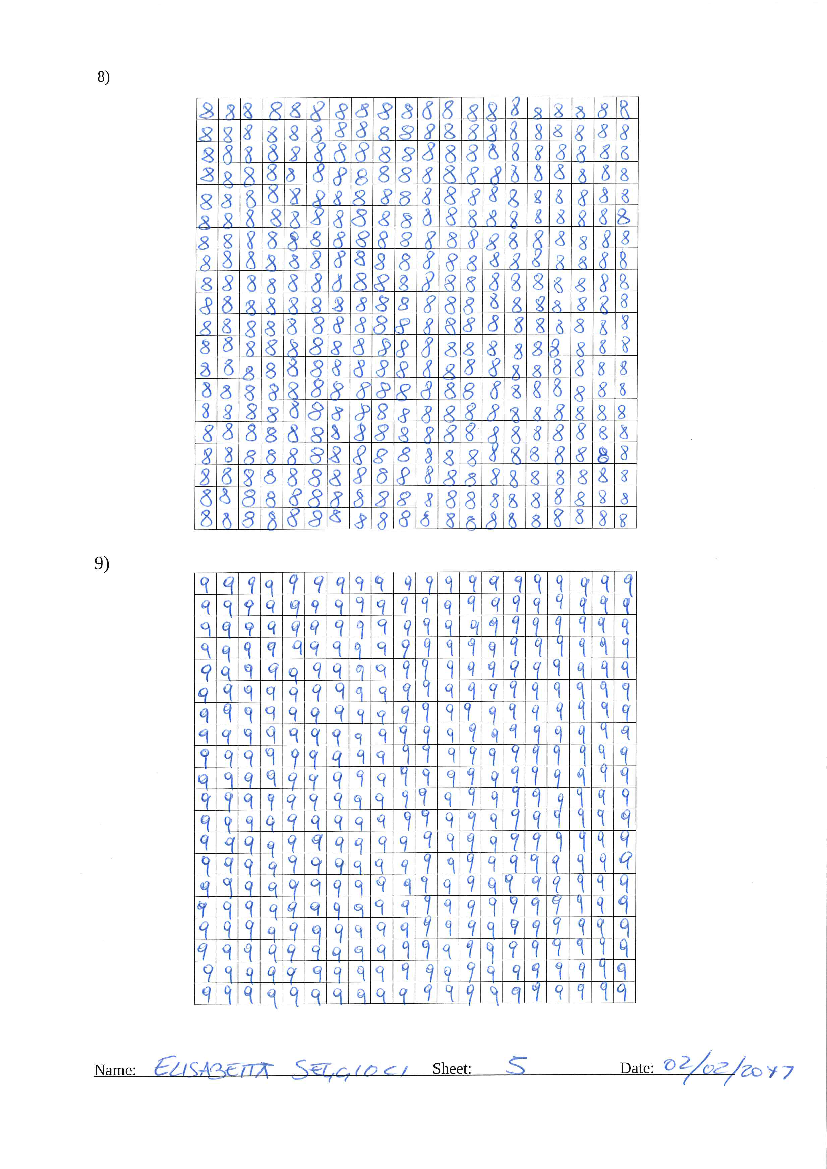 8)
8 8 8 8 8 8 8 8 8 8 8 8 8 8 8 8 8 8 8 8
8 8 8 8 8 8 8 8 8 8 8 8 8 8 8 8 8 8 8 8
8 8 8 8 8 8 8 8 8 8 8 8 8 8 8 8 8 8 8 8
8 8 8 8 8 8 8 8 8 8 8 8 8 8 8 8 8 8 8 8
8 8 8 8 8 8 8 8 8 8 8 8 8 8 8 8 8 8 8 8
8 8 8 8 8 8 8 8 8 8 8 8 8 8 8 8 8 8 8 8
8 8 8 8 8 8 8 8 8 8 8 8 8 8 8 8 8 8 8 8
8 8 8 8 8 8 8 8 8 8 8 8 8 8 8 8 8 8 8 8
8 8 8 8 8 8 8 8 8 8 8 8 8 8 8 8 8 8 8 8
8 8 8 8 8 8 8 8 8 8 8 8 8 8 8 8 8 8 8 8
8 8 8 8 8 8 8 8 8 8 8 8 8 8 8 8 8 8 8 8
8 8 8 8 8 8 8 8 8 8 8 8 8 8 8 8 8 8 8 8
8 8 8 8 8 8 8 8 8 8 8 8 8 8 8 8 8 8 8 8
8 8 8 8 8 8 8 8 8 8 8 8 8 8 8 8 8 8 8 8
8 8 8 8 8 8 8 8 8 8 8 8 8 8 8 8 8 8 8 8
8 8 8 8 8 8 8 8 8 8 8 8 8 8 8 8 8 8 8 8
8 8 8 8 8 8 8 8 8 8 8 8 8 8 8 8 8 8 8 8
8 8 8 8 8 8 8 8 8 8 8 8 8 8 8 8 8 8 8 8
8 8 8 8 8 8 8 8 8 8 8 8 8 8 8 8 8 8 8 8
8 8 8 8 8 8 8 8 8 8 8 8 8 8 8 8 8 8 8 8
9)
9 9 9 9 9 9 9 9 9 9 9 9 9 9 9 9 9 9 9 9
9 9 9 9 9 9 9 9 9 9 9 9 9 9 9 9 9 9 9 9
9 9 9 9 9 9 9 9 9 9 9 9 9 9 9 9 9 9 9 9
9 9 9 9 9 9 9 9 9 9 9 9 9 9 9 9 9 9 9 9
9 9 9 9 9 9 9 9 9 9 9 9 9 9 9 9 9 9 9 9
9 9 9 9 9 9 9 9 9 9 9 9 9 9 9 9 9 9 9 9
9 9 9 9 9 9 9 9 9 9 9 9 9 9 9 9 9 9 9 9
9 9 9 9 9 9 9 9 9 9 9 9 9 9 9 9 9 9 9 9
9 9 9 9 9 9 9 9 9 9 9 9 9 9 9 9 9 9 9 9
9 9 9 9 9 9 9 9 9 9 9 9 9 9 9 9 9 9 9 9
9 9 9 9 9 9 9 9 9 9 9 9 9 9 9 9 9 9 9 9
9 9 9 9 9 9 9 9 9 9 9 9 9 9 9 9 9 9 9 9
9 9 9 9 9 9 9 9 9 9 9 9 9 9 9 9 9 9 9 9
9 9 9 9 9 9 9 9 9 9 9 9 9 9 9 9 9 9 9 9
9 9 9 9 9 9 9 9 9 9 9 9 9 9 9 9 9 9 9 9
9 9 9 9 9 9 9 9 9 9 9 9 9 9 9 9 9 9 9 9
9 9 9 9 9 9 9 9 9 9 9 9 9 9 9 9 9 9 9 9
9 9 9 9 9 9 9 9 9 9 9 9 9 9 9 9 9 9 9 9
9 9 9 9 9 9 9 9 9 9 9 9 9 9 9 9 9 9 9 9
9 9 9 9 9 9 9 9 9 9 9 9 9 9 9 9 9 9 9 9
Name: ELISABETTA Sheet: 5 Date: 02/02/2017